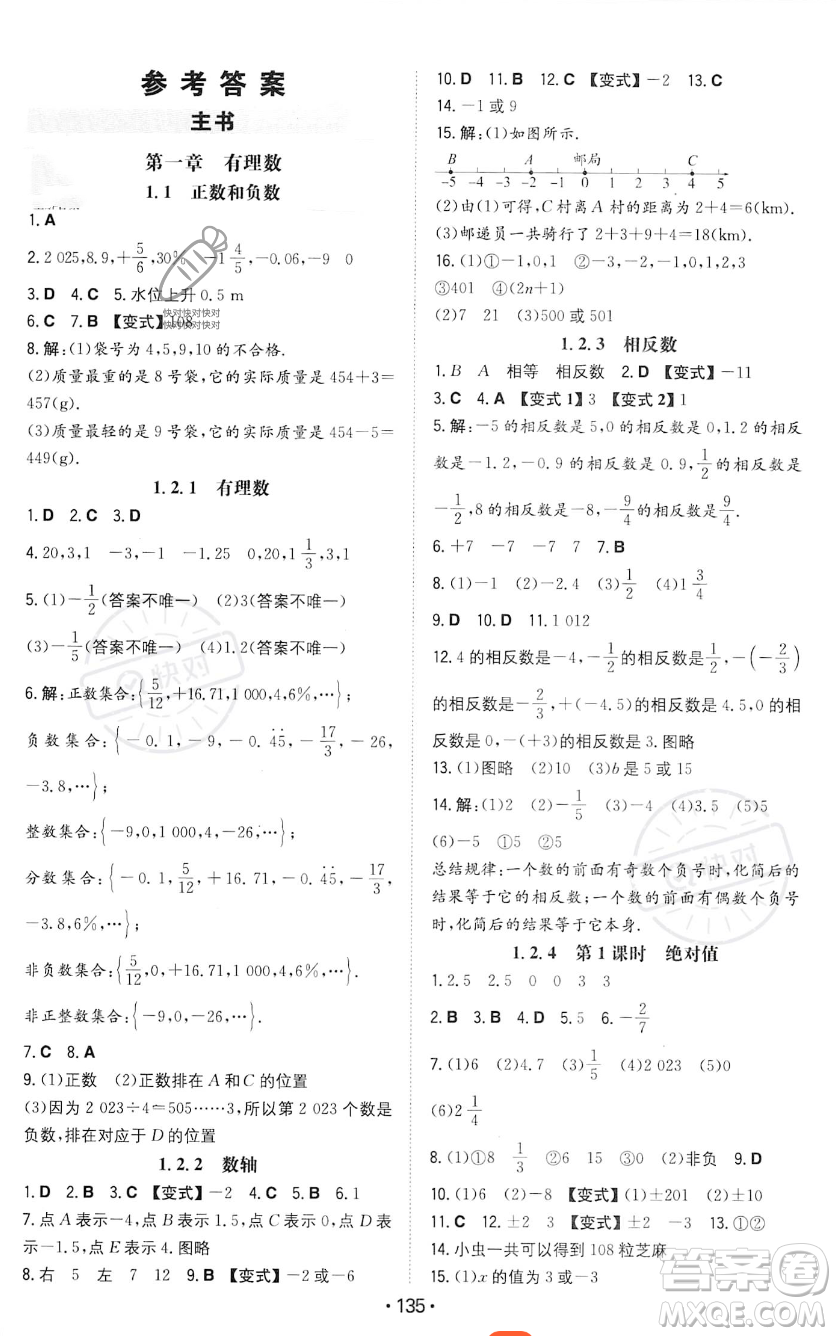 参考答案
主书
第一章 有理数
1.1 正数和负数
1. A
2. 2 025,8.9,+5/6,30% －1 4/5,－0.06,－9 0
3. D 4. C 5. 水位上升 0.5 m
快对快对快对
快对快对快对
6. C 7. B 【变式】108
8. 解:(1)袋号为 4,5,9,10 的不合格.
(2)质量最重的是 8 号袋,它的实际质量是 454＋3＝
457(g).
(3)质量最轻的是 9 号袋,它的实际质量是 454－5＝
449(g).
1.2.1 有理数
1. D 2. C 3. D
4. 20,3,1 －3,－1 －1.25 0,20,1 1/3,3,1
5. (1)－1/2(答案不唯一) (2)3(答案不唯一)
(3)－1/5(答案不唯一) (4)1.2(答案不唯一)
6. 解:正数集合:{5/12,＋16.71,1 000,4,6%,…};
负数集合:{－0.1,－9,－0.4̇5̇,－17/3,－26,
－3.8,…};
整数集合:{－9,0,1 000,4,－26,…};
分数集合:{－0.1,5/12,＋16.71,－0.4̇5̇,－17/3,
－3.8,6%,…};
非负数集合:{5/12,0,＋16.71,1 000,4,6%,…};
非正整数集合:{－9,0,－26,…}.
7. C 8. A
9. (1)正数 (2)正数排在 A 和 C 的位置
(3)因为 2 023÷4＝505……3,所以第 2 023 个数是
负数,排在对应于 D 的位置
1.2.2 数轴
1. D 2. B 3. C 【变式】－2 4. C 5. B 6. 1
7. 点 A 表示－4,点 B 表示 1.5,点 C 表示 0,点 D 表示
－1.5,点 E 表示 4. 图略
8. 右 5 左 7 12 9. B 【变式】－2 或－6
10. D 11. B 12. C 【变式】－2 13. C
14. －1 或 9
15. 解:(1)如图所示.
B A 邮局 C
-5 -4 -3 -2 -1 0 1 2 3 4 5
(2)由(1)可得,C 村离 A 村的距离为 2＋4＝6(km).
(3)邮递员一共骑行了 2＋3＋9＋4＝18(km).
16. (1)①－1,0,1 ②－2,－1,0,1,2,3
③401 ④(2n＋1)
(2)7 21 (3)500 或 501
1.2.3 相反数
1. B A 相等 相反数 2. D 【变式】－11
3. C 4. A 【变式 1】3 【变式 2】1
5. 解:－5 的相反数是 5,0 的相反数是 0,1.2 的相反
数是－1.2,－0.9 的相反数是 0.9,1/2的相反数是
－1/2,8 的相反数是－8,－9/4的相反数是9/4.
6. ＋7 －7 －7 7. B
8. (1)－1 (2)－2.4 (3)1/2 (4)1 3/4
9. D 10. D 11. 1 012
12. 4 的相反数是－4,－1/2的相反数是1/2,－(－2/3)
的相反数是－2/3,＋(－4.5)的相反数是 4.5,0 的相
反数是 0,－(＋3)的相反数是 3. 图略
13. (1)图略 (2)10 (3)b 是 5 或 15
14. 解:(1)2 (2)－1/5 (3)4 (4)3.5 (5)5
(6)－5 ①5 ②5
总结规律:一个数的前面有奇数个负号时,化简后的
结果等于它的相反数;一个数的前面有偶数个负号
时,化简后的结果等于它本身.
1.2.4 第 1 课时 绝对值
1. 2.5 2.5 0 0 3 3
2. B 3. B 4. D 5. 5 6. －2/7
7. (1)6 (2)4.7 (3)1/5 (4)2 023 (5)0
(6)2 1/4
8. (1)①8 1/3 ②6 15 ③0 (2)非负 9. D
10. (1)6 (2)－8 【变式】(1)±201 (2)±8
11. C 12. ±2 3 【变式】±2 －3 13. ①②
14. 小虫一共可以得到 108 粒芝麻
15. (1)x 的值为 3 或－3
·135·
快对
快对
答案卷